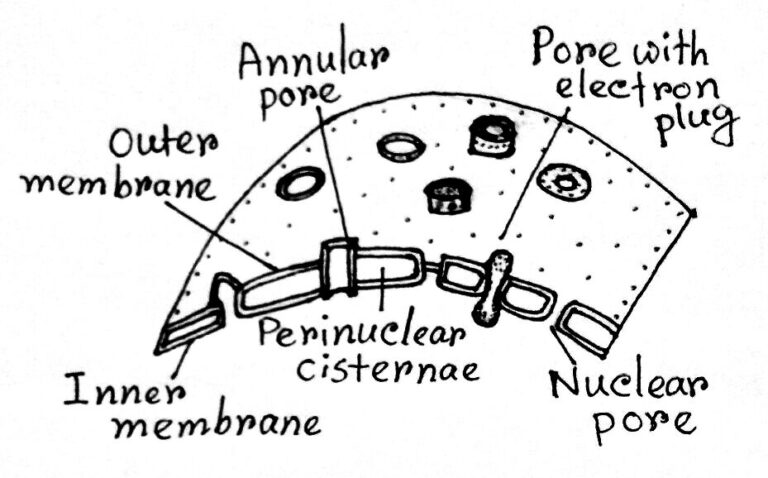 Annular
pore
Pore with
electron
plug
Outer
membrane
Perinuclear
cisternae
Inner
membrane
Nuclear
pore